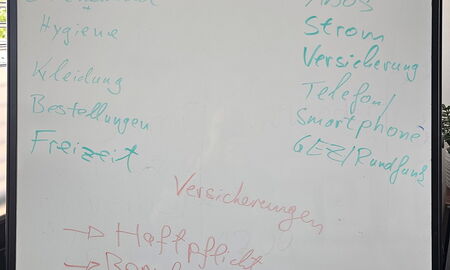 Hygiene
Kleidung
Bestellungen
Freizeit
Abos
Strom
Versicherung
Telefon/
Smartphone
GEZ/Rundfunk
Versicherungen
→ Haftpflicht
→